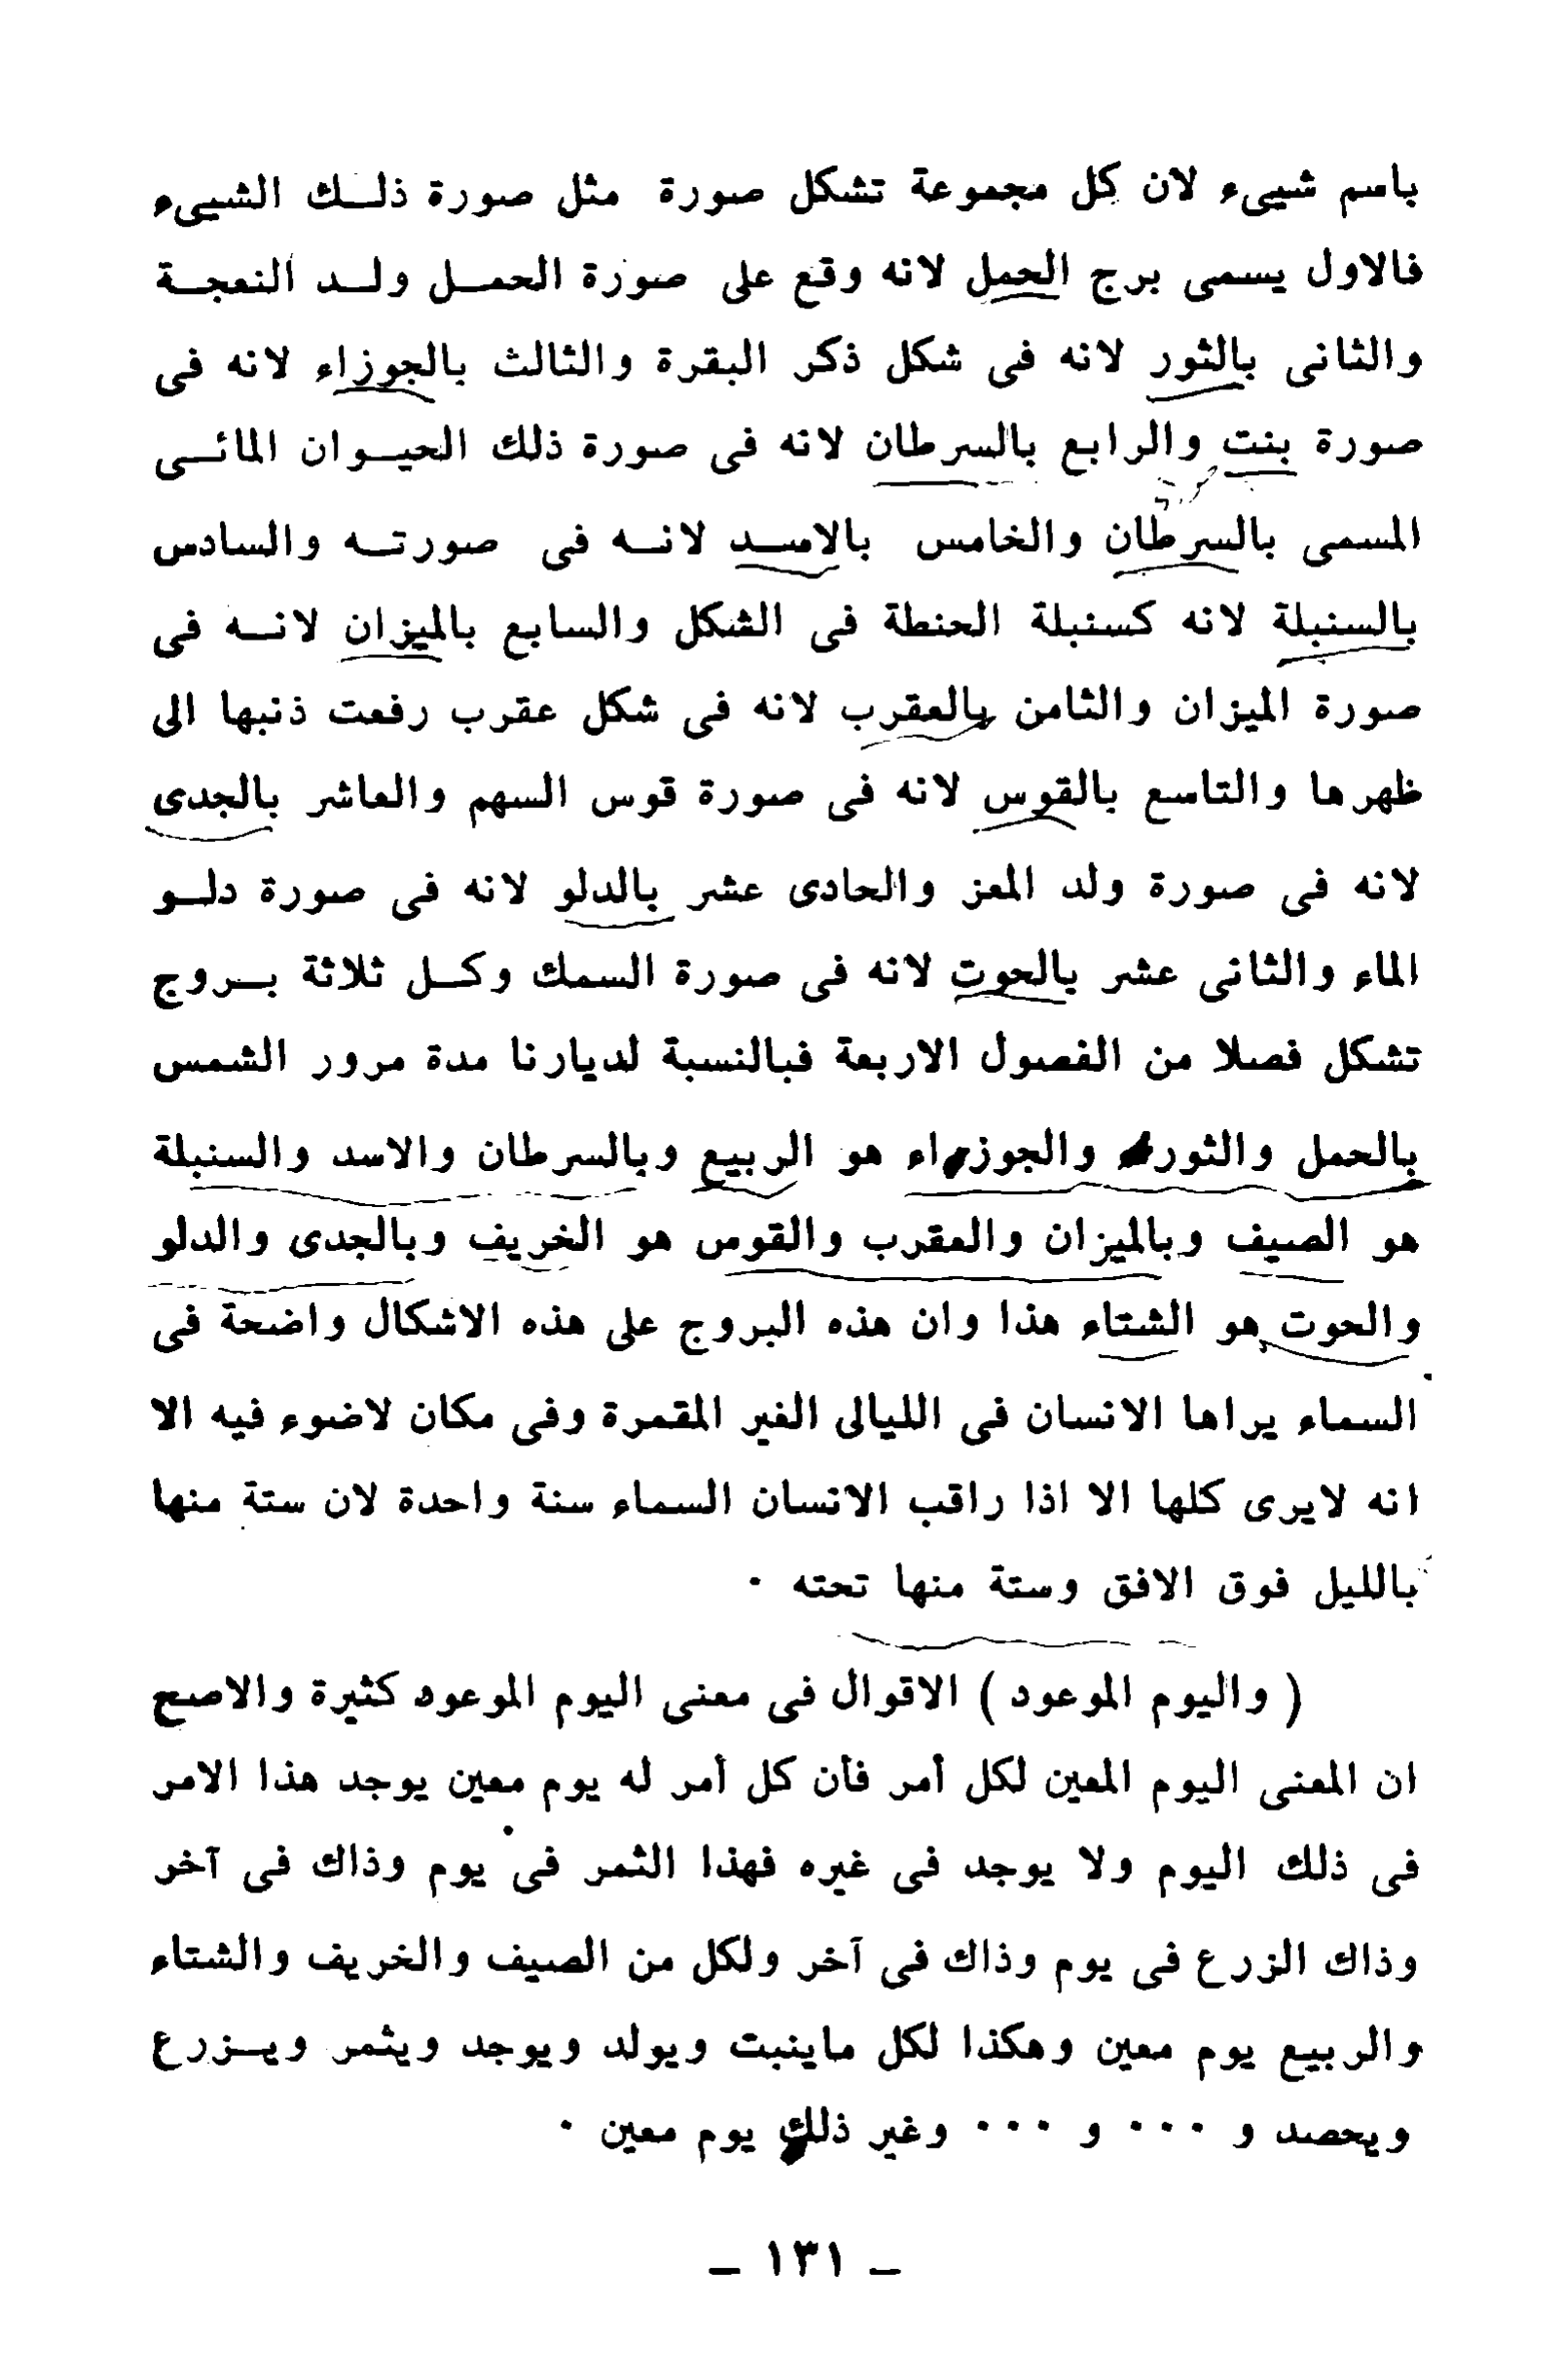 باسم شيىء لان كل مجموعة تشكل صورة مثل صورة ذلك الشيىء
فالاول يسمى برج الحمل لانه وقع على صورة الحمل ولد النعجة
والثانى بالثور لانه فى شكل ذكر البقرة والثالث بالجوزاء لانه فى
صورة بنت والرابع بالسرطان لانه فى صورة ذلك الحيوان المائى
المسمى بالسرطان والخامس بالاسد لانه فى صورته والسادس
بالسنبلة لانه كسنبلة الحنطة فى الشكل والسابع بالميزان لانه فى
صورة الميزان والثامن بالعقرب لانه فى شكل عقرب رفعت ذنبها الى
ظهرها والتاسع بالقوس لانه فى صورة قوس السهم والعاشر بالجدى
لانه فى صورة ولد المعز والحادى عشر بالدلو لانه فى صورة دلو
الماء والثانى عشر بالحوت لانه فى صورة السمك وكل ثلاثة بروج
تشكل فصلا من الفصول الاربعة فبالنسبة لديارنا مدة مرور الشمس
بالحمل والثور والجوزاء هو الربيع وبالسرطان والاسد والسنبلة
هو الصيف وبالميزان والعقرب والقوس هو الخريف وبالجدى والدلو
والحوت هو الشتاء هذا وان هذه البروج على هذه الاشكال واضحة فى
السماء يراها الانسان فى الليالى الغير المقمرة وفى مكان لاضوء فيه الا
انه لايرى كلها الا اذا راقب الانسان السماء سنة واحدة لان ستة منها
بالليل فوق الافق وستة منها تحته ٠
( واليوم الموعود ) الاقوال فى معنى اليوم الموعود كثيرة والاصح
ان المعنى اليوم المعين لكل أمر فأن كل أمر له يوم معين يوجد هذا الامر
فى ذلك اليوم ولا يوجد فى غيره فهذا الثمر فى يوم وذاك فى آخر
وذاك الزرع فى يوم وذاك فى آخر ولكل من الصيف والخريف والشتاء
والربيع يوم معين وهكذا لكل ماينبت ويولد ويوجد ويثمر ويزرع
ويحصد و ٠٠٠ و ٠٠٠ وغير ذلك يوم معين ٠
– ١٣١ –